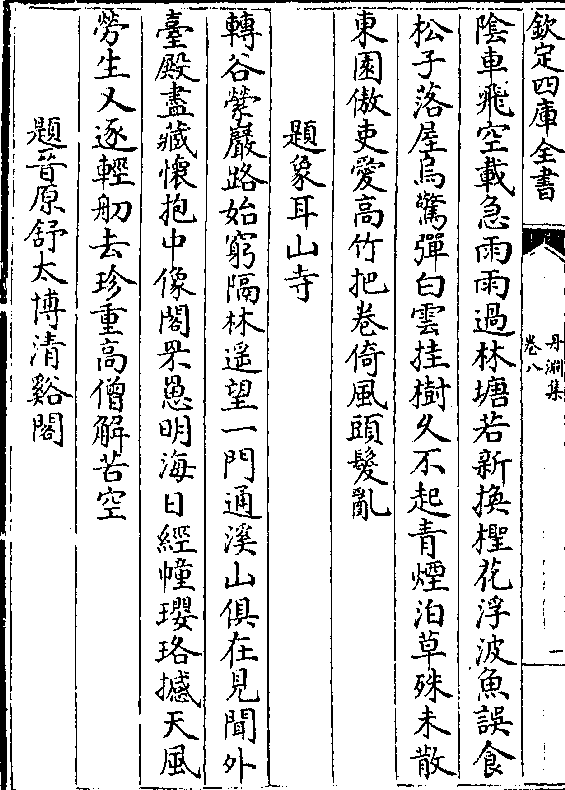 欽定四庫全書
丹淵集
卷八
一
陰車飛空載急雨雨過林塘若新換檉花浮波魚誤食
松子落屋烏驚彈白雲挂樹久不起青煙泊草殊未散
東園傲吏愛高竹把卷倚風頭髮亂
題象耳山寺
轉谷縈巖路始窮隔林遥望一門通溪山俱在見聞外
臺殿盡藏懷抱中像閣罘罳明海日經幢瓔珞撼天風
勞生又逐輕舠去珍重高僧解苦空
題晉原舒太博清谿閣